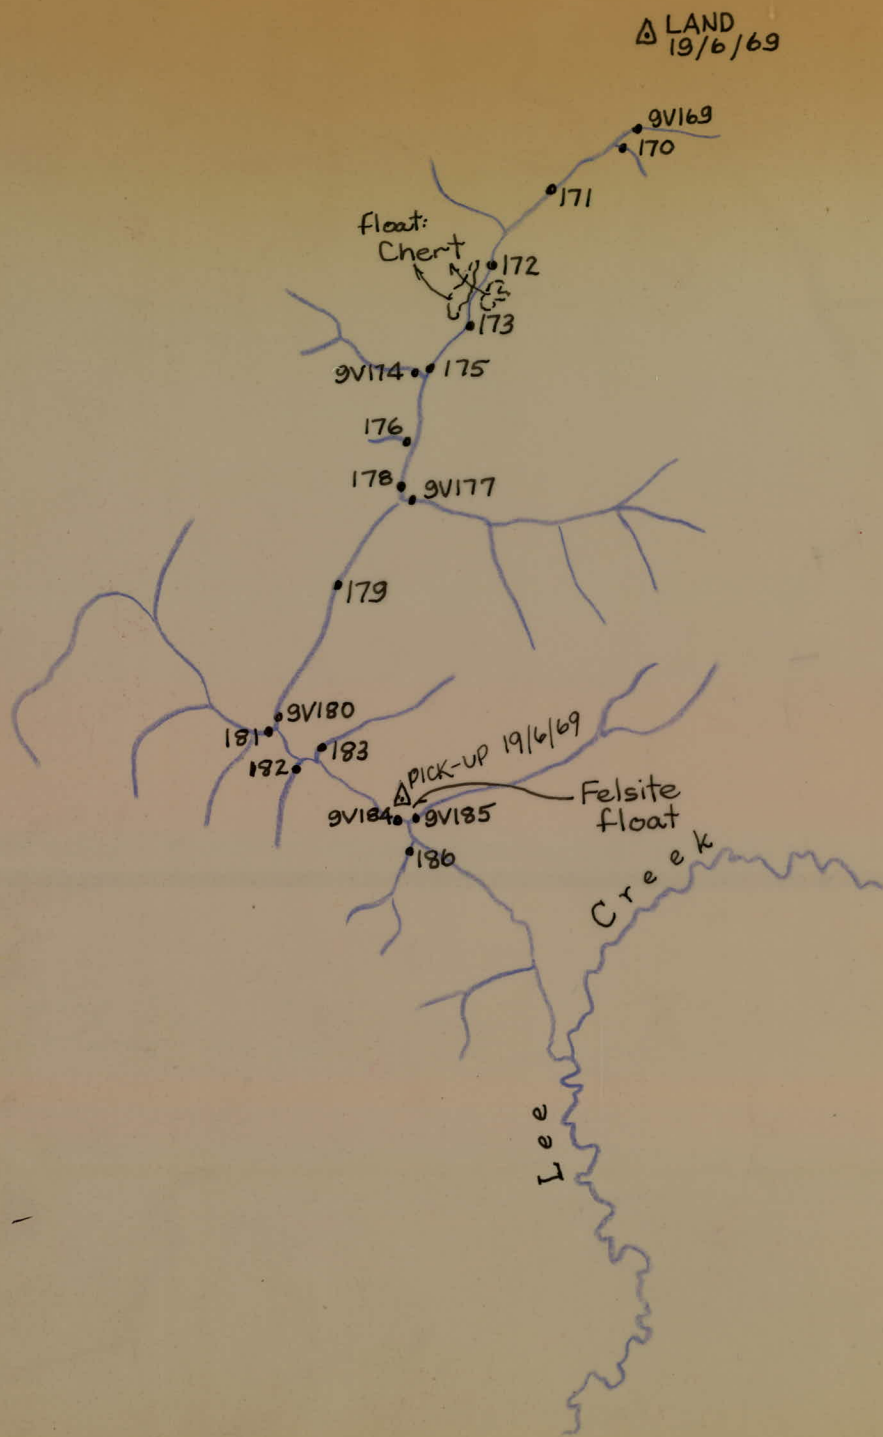 LAND
19/6/69
9V169
170
171
float:
Chert
172
173
9V174
175
176
178
9V177
179
9V180
181
183
182
PICK-UP 19/6/69
Felsite
float
9V184
9V185
186
Lee Creek